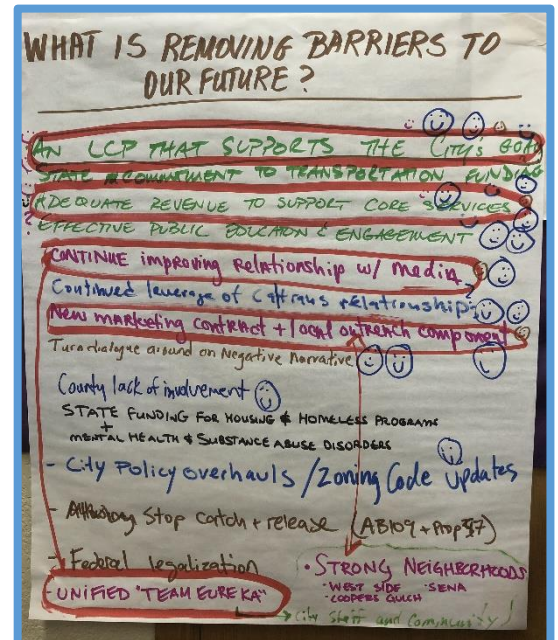 WHAT IS REMOVING BARRIERS TO
OUR FUTURE?
AN LCP THAT SUPPORTS THE CITY'S GOAL
STATE COMMITMENT TO TRANSPORTATION FUNDING
ADEQUATE REVENUE TO SUPPORT CORE SERVICES
EFFECTIVE PUBLIC EDUCATION & ENGAGEMENT
CONTINUE improving Relationship w/ media
Continued leverage of Caltrans relationship
New marketing contract + local outreach component
Turn dialogue around on Negative Narrative
County lack of involvement
STATE FUNDING FOR HOUSING & HOMELESS PROGRAMS
+
MENTAL HEALTH & SUBSTANCE ABUSE DISORDERS
- City Policy overhauls / Zoning Code updates
- Stop catch + release (AB109 + Prop 47)
- Federal legalization
- UNIFIED "TEAM EUREKA"
• STRONG NEIGHBORHOODS
• WEST SIDE • SENA
• COOPERS GULCH
City Staff and Community!